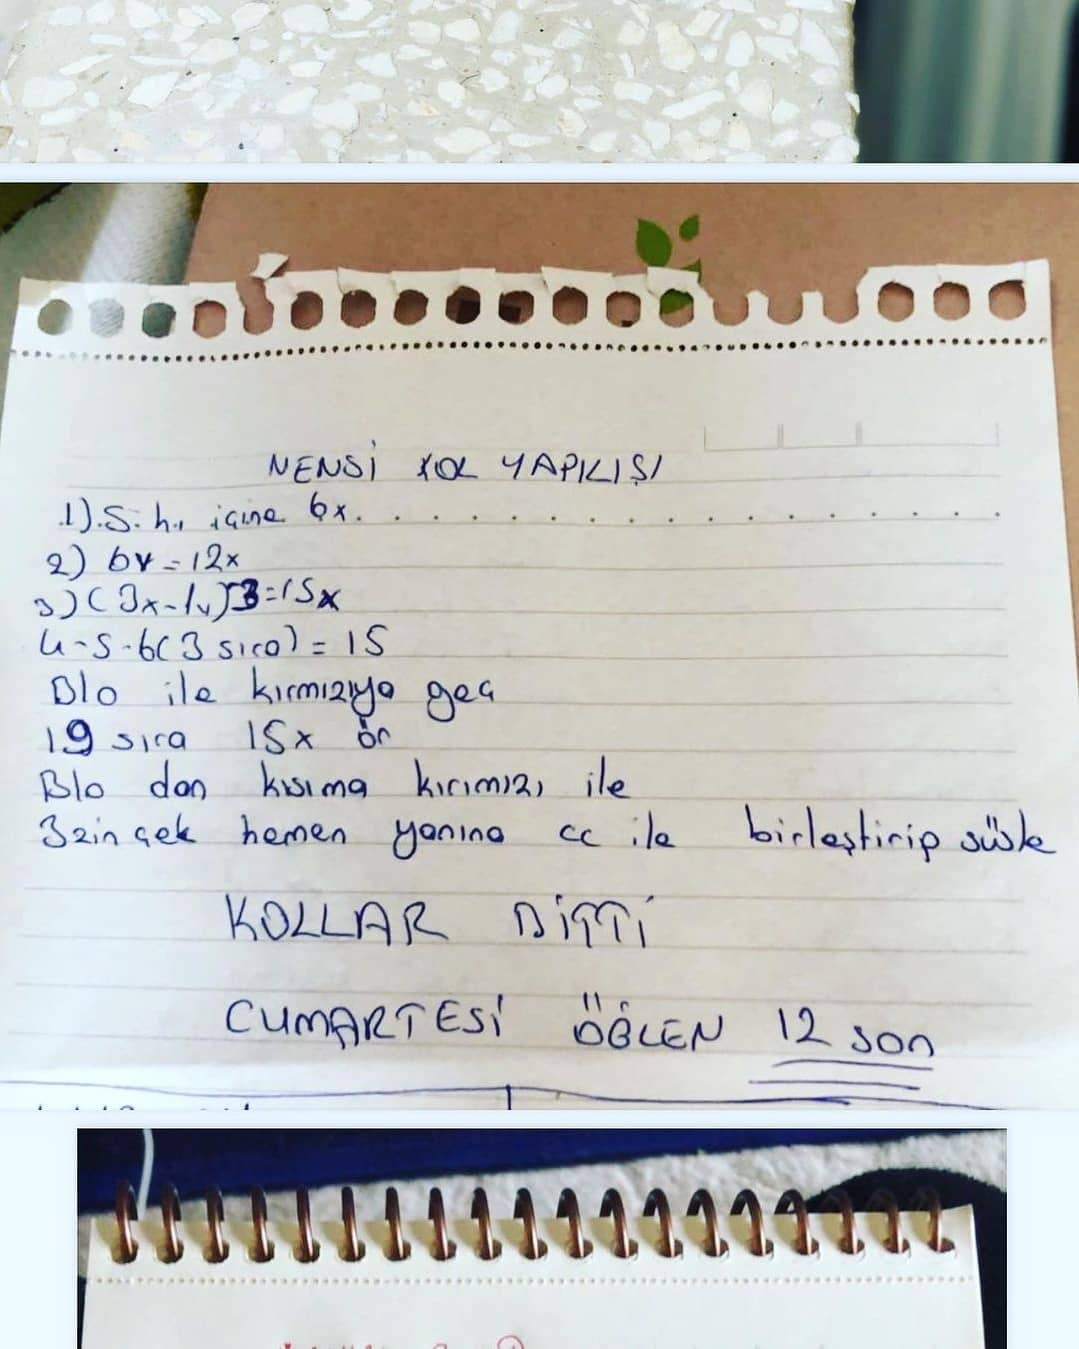 NENSİ KOL YAPILIŞI
1).S.h. içine 6x. . . . . . . . . . . . . . . . .
2) 6v = 12x
3) (3x-1v)3=15x
4-5-6(3 sıra) = 15
Blo ile kırmızıya geç
19 sıra 15x ör
Blo dan kısıma kırımızı ile
3zin çek hemen yanına cc ile birleştirip süsle
KOLLAR BİTTİ
CUMARTESİ ÖĞLEN 12 son